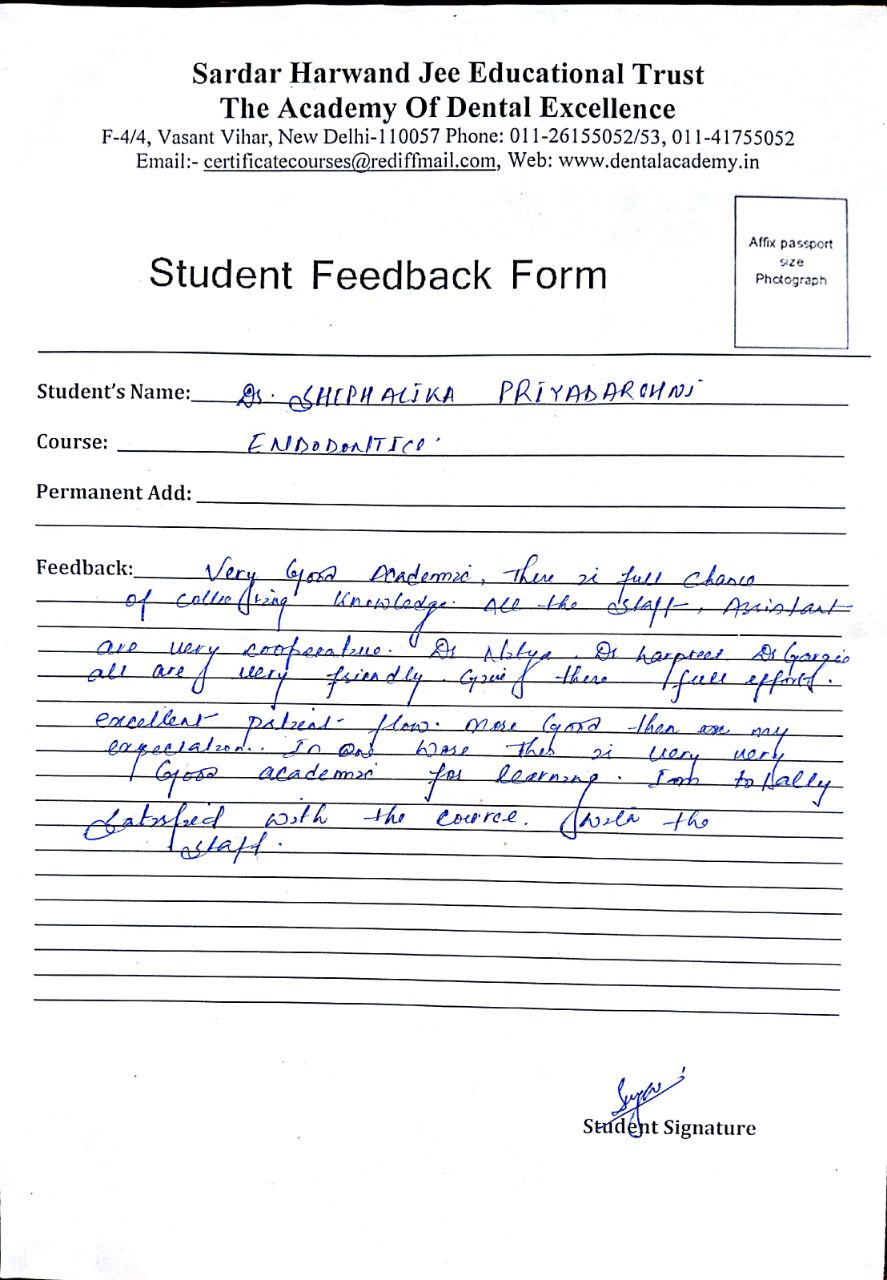 Sardar Harwand Jee Educational Trust
The Academy Of Dental Excellence
F-4/4, Vasant Vihar, New Delhi-110057 Phone: 011-26155052/53, 011-41755052
Email:- certificatecourses@rediffmail.com, Web: www.dentalacademy.in
Affix passport
size
Photograph
Student Feedback Form
Student's Name: Dr. SHEPHALIKA PRIYADARSHNI
Course: ENDODONTICS.
Permanent Add:
Feedback: Very Good Academic, There is full chance
of collecting knowledge. All the staff, Assistant
are very cooperative. Dr Dr harpreet Dr
all are very friendly. there full effort.
excellent patient flow. More Good then my
expectation. In one There is very very
Good academic for learning. I am totally
Satisfied with the cource. with the
staff.
Student Signature